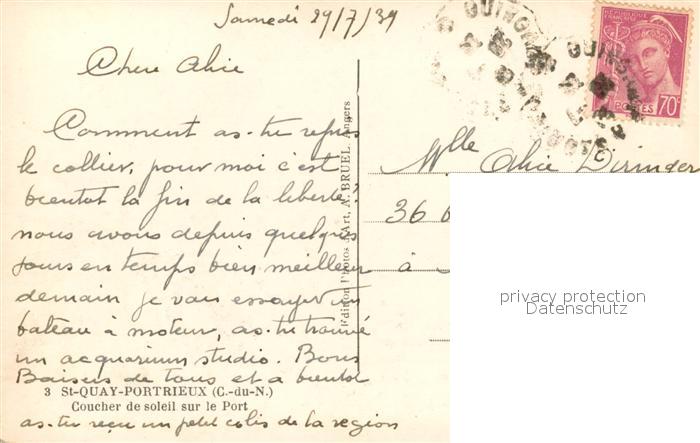 Samedi 29/7/39
Chere Alice
Comment as-tu repris
le collier, pour moi c'est
bientot la fin de la liberté?
nous avons depuis quelques
jours en temps bien meilleur
demain je vais essayer un
bateau à moteur, as-tu trouvé
un acquarium studio. Bons
Baisers de tous et a bientot
3 St-QUAY-PORTRIEUX (C.-du-N.)
Coucher de soleil sur le Port
as-tu reçu un petit colis de la region
Edition Photos d'Art, A. BRUEL, Angers
REPUBLIQUE FRANÇAISE
POSTES 70c
Mlle Alice Diringer
36
à
privacy protection
Datenschutz